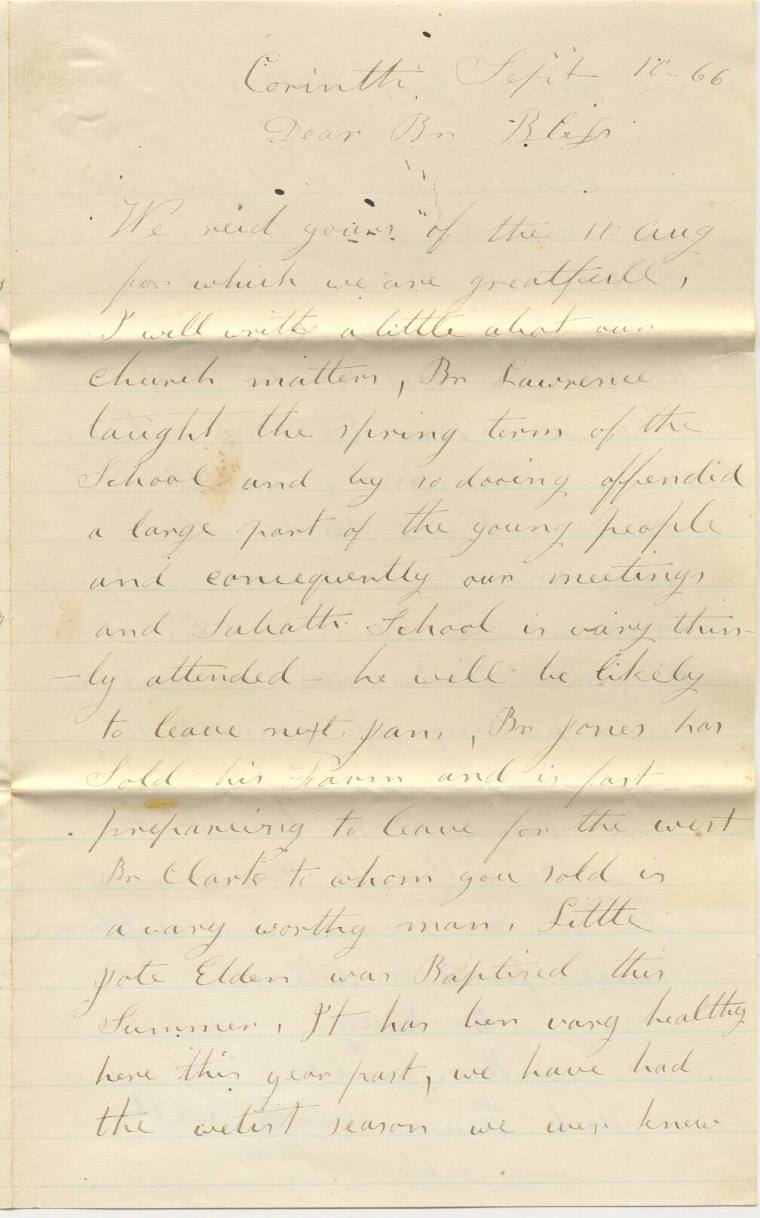 Corinth Sept 10 - 66
Dear Br Bliss
We recd yours of the 11 Aug
for which we are greatfull,
I will write a little abot our
church matters, Br Lawrence
taught the spring term of the
School and by so dooing offendid
a large part of the young people
and concequently our meetings
and Sabath School is vary thin-
-ly attended - he will be likely
to leave next Jan, Br Jones has
Sold his Farm and is fast
prepareing to leave for the west
Br Clark to whom you sold is
a vary worthy man. Little
Elden was Baptised this
Summer. It has ben vary healthy
here this year past, we have had
the wetist season we ever knew